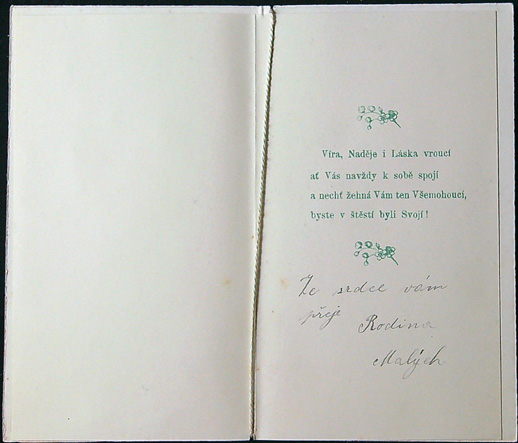 Víra, Naděje i Láska vroucí
ať Vás navždy k sobě spojí
a nechť žehná Vám ten Všemohoucí,
byste v štěstí byli Svojí!
Ze srdce vám
přeje Rodina
Malých